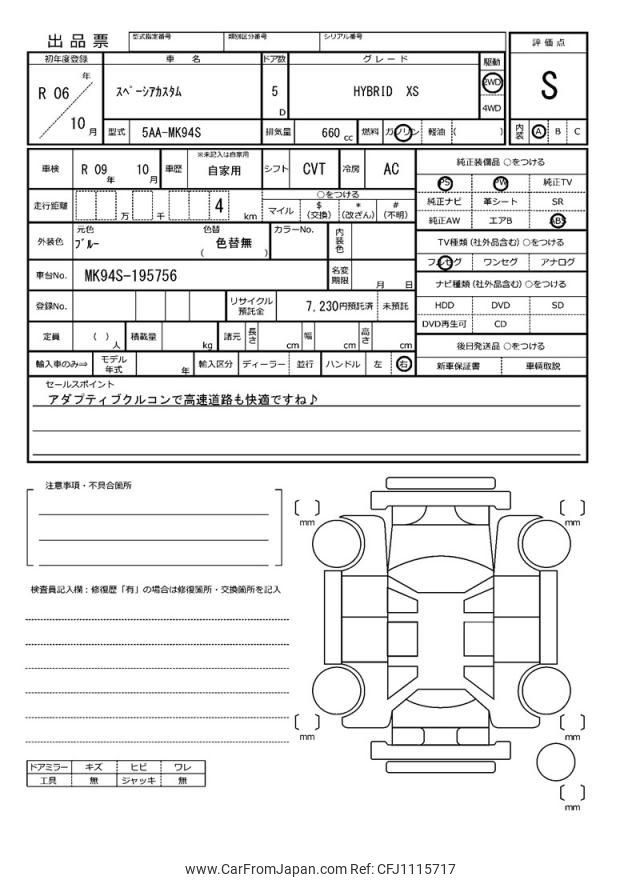 出品票
型式指定番号 類別区分番号 シリアル番号
評価点
初年度登録 車名 ドア数 グレード 駆動
R 06 年 スペーシアカスタム 5 D HYBRID XS 2WD S
4WD
10 月 型式 5AA-MK94S 排気量 660 cc 燃料 ガソリン 軽油 ( ) 内装 A B C
車検 R 09 年 10 月 車歴 ※未記入は自家用 自家用 シフト CVT 冷房 AC
純正装備品 ○をつける
PS PW 純正TV
純正ナビ 革シート SR
純正AW エアB ABS
走行距離 万 千 4 km
○をつける
マイル $ (交換) * (改ざん) # (不明)
TV種類 (社外品含む) ○をつける
フルセグ ワンセグ アナログ
外装色 元色 ブルー 色替 色替無 ( ) カラーNo. 内装色
車台No. MK94S-195756 名変期限 月 日
ナビ種類 (社外品含む) ○をつける
HDD DVD SD
DVD再生可 CD
登録No. リサイクル預託金 7,230円預託済 未預託
定員 ( ) 人 積載量 kg 諸元 長さ cm 幅 cm 高さ cm
後日発送品 ○をつける
新車保証書 車輌取説
輸入車のみ⇒ モデル年式 年 輸入区分 ディーラー 並行 ハンドル 左 右
セールスポイント
アダプティブクルコンで高速道路も快適ですね♪
注意事項・不具合箇所
検査員記入欄：修復歴「有」の場合は修復箇所・交換箇所を記入
mm
mm
mm
mm
mm
ドアミラー キズ ヒビ ワレ
工具 無 ジャッキ 無
www.CarFromJapan.com Ref: CFJ1115717